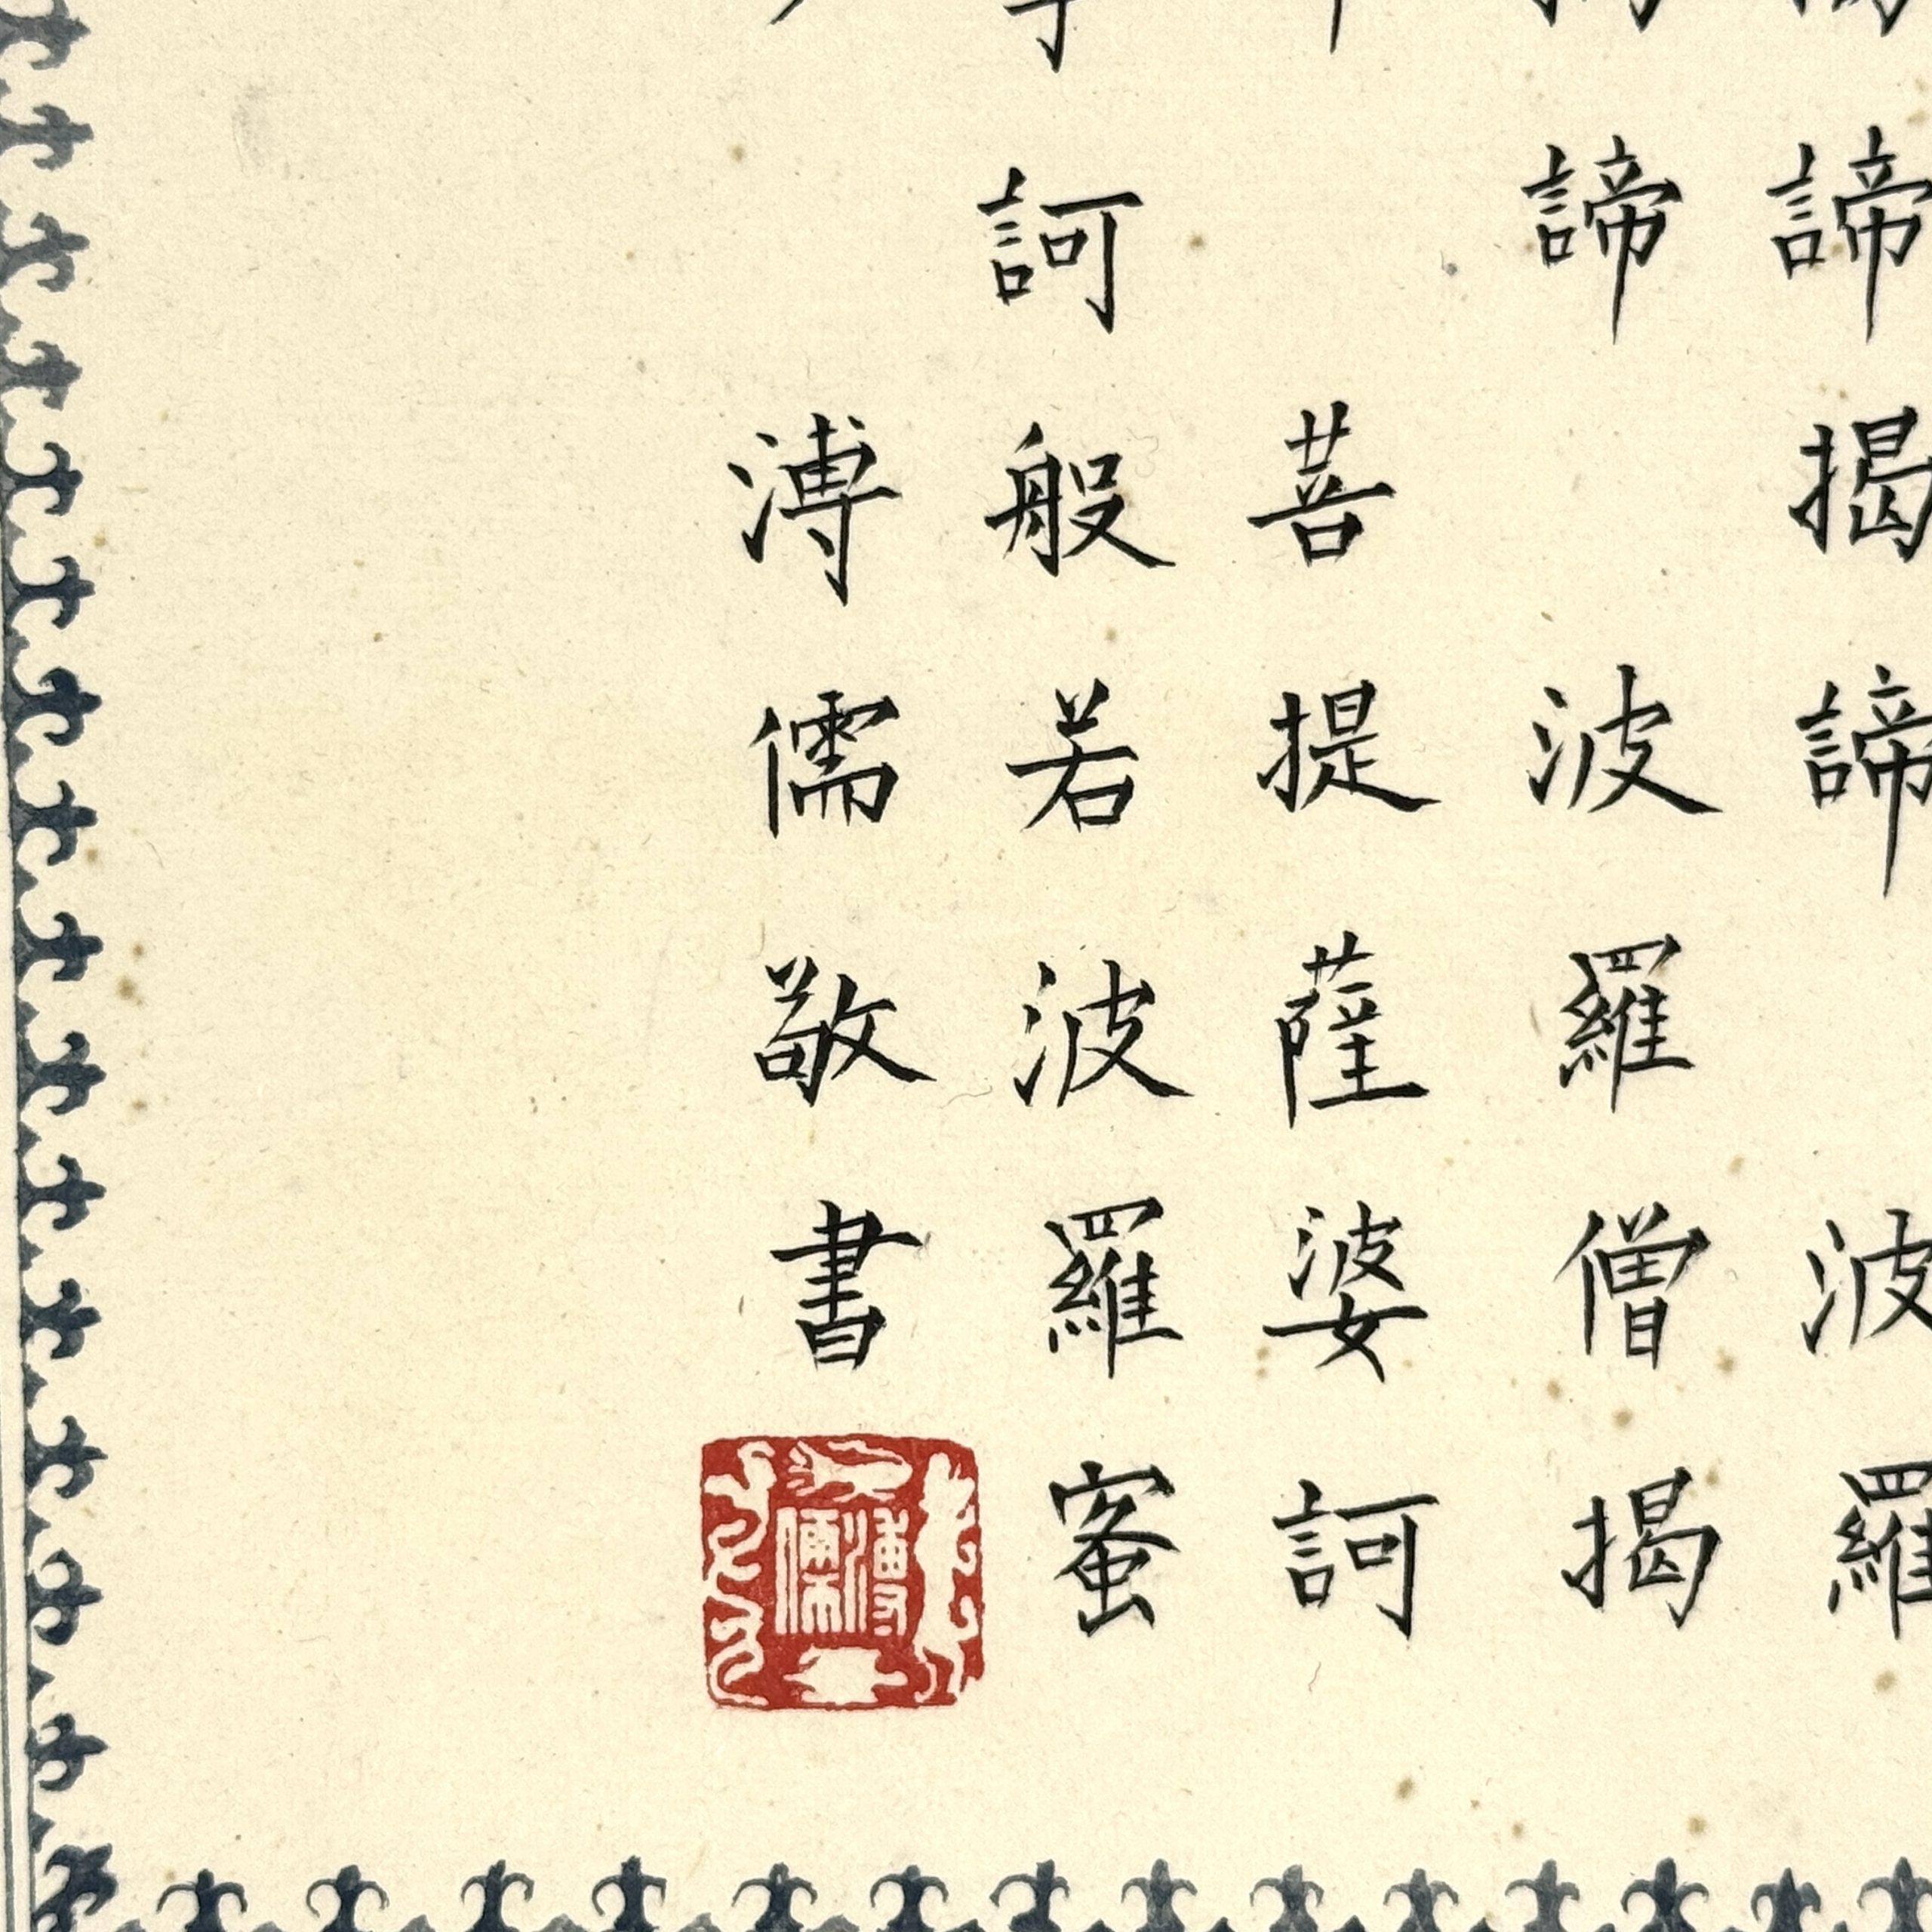 諦揭諦波羅
諦波羅僧揭
菩提薩婆訶
訶般若波羅蜜
溥儒敬書
溥儒